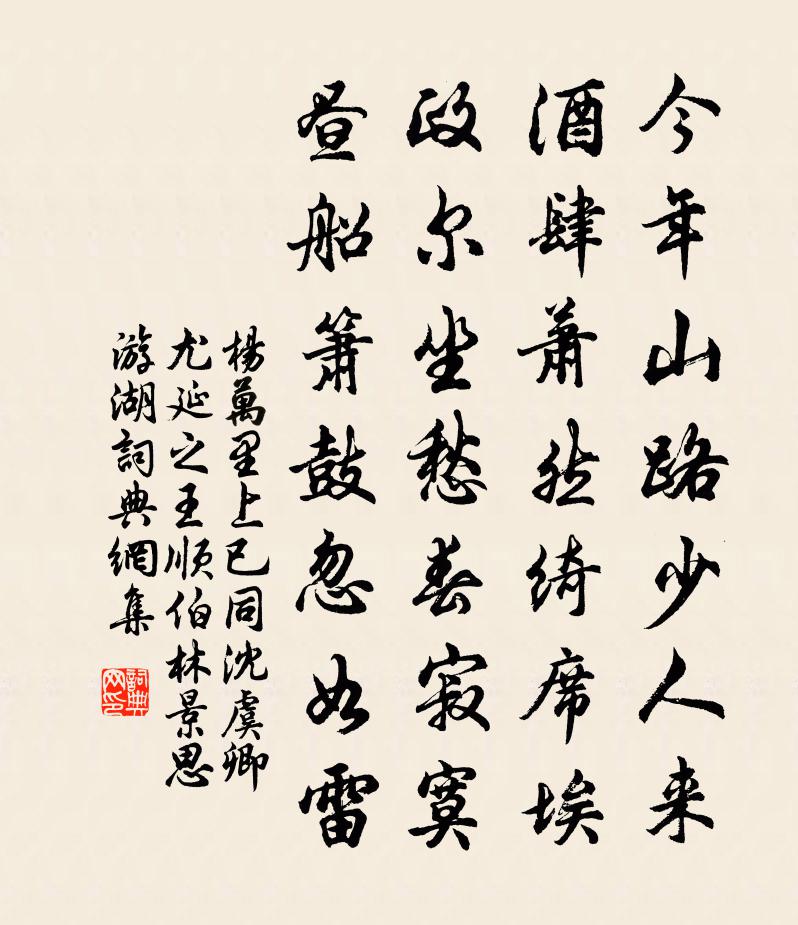 今年山路少人来
酒肆萧然绮席埃
政尔坐愁春寂寞
昼船箫鼓忽如雷
杨萬里上巳同沈虞卿
尤延之王顺伯林景思
游湖詞典網集
詞典
网印